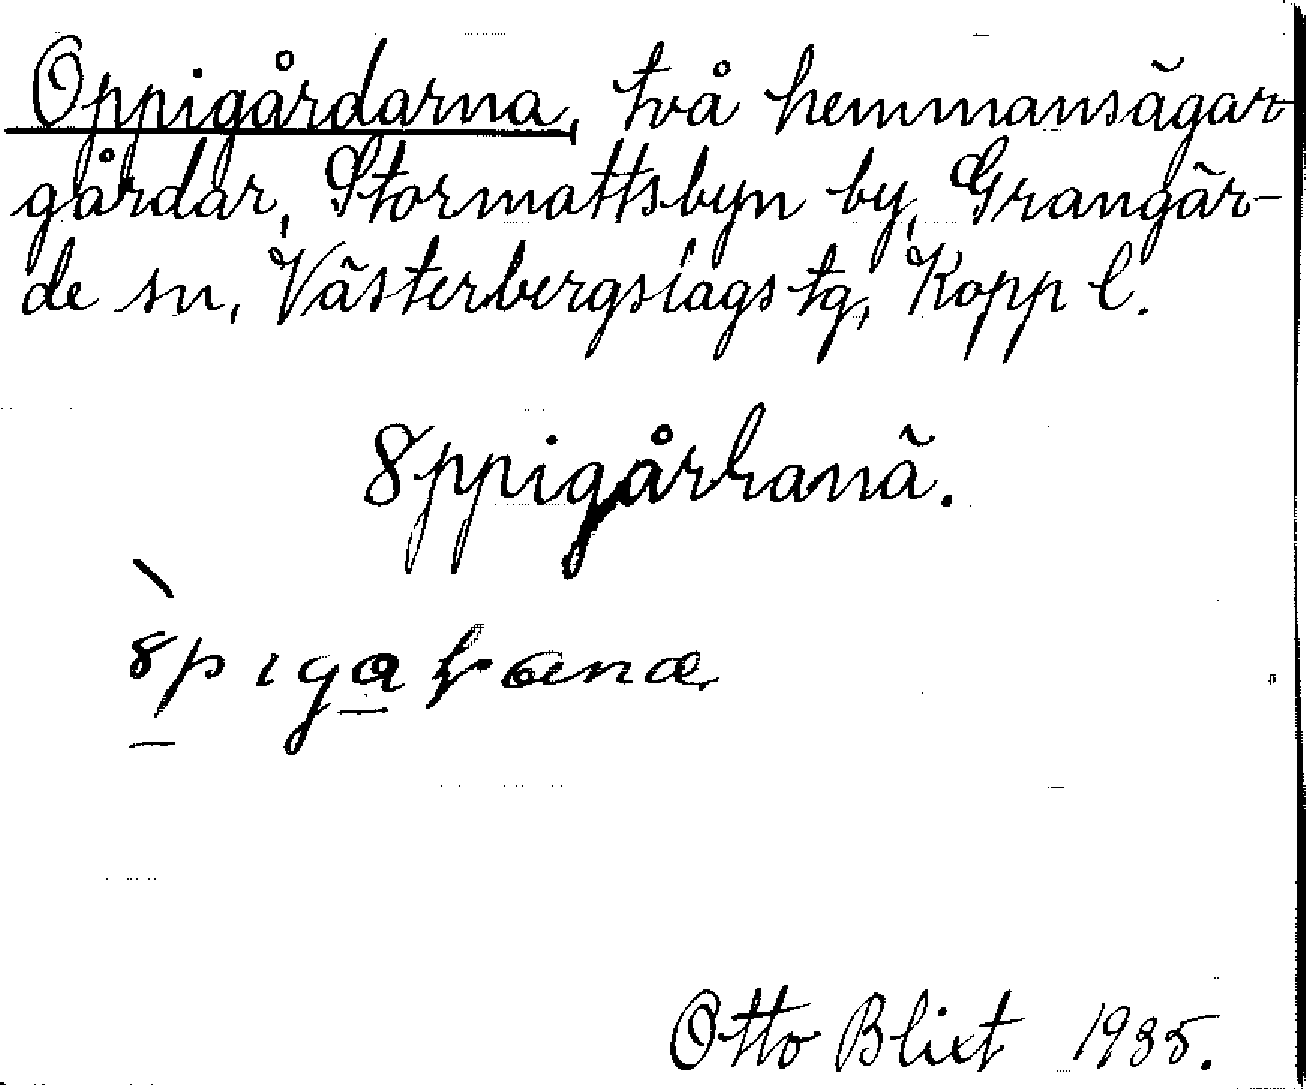 Oppigårdarna, två hemmansägar-
gårdar, Stormattsbyn by, Grangär-
de sn, Västerbergslags tg, Kopp l.
8ppigårhanä.
Otto Blixt 1935.